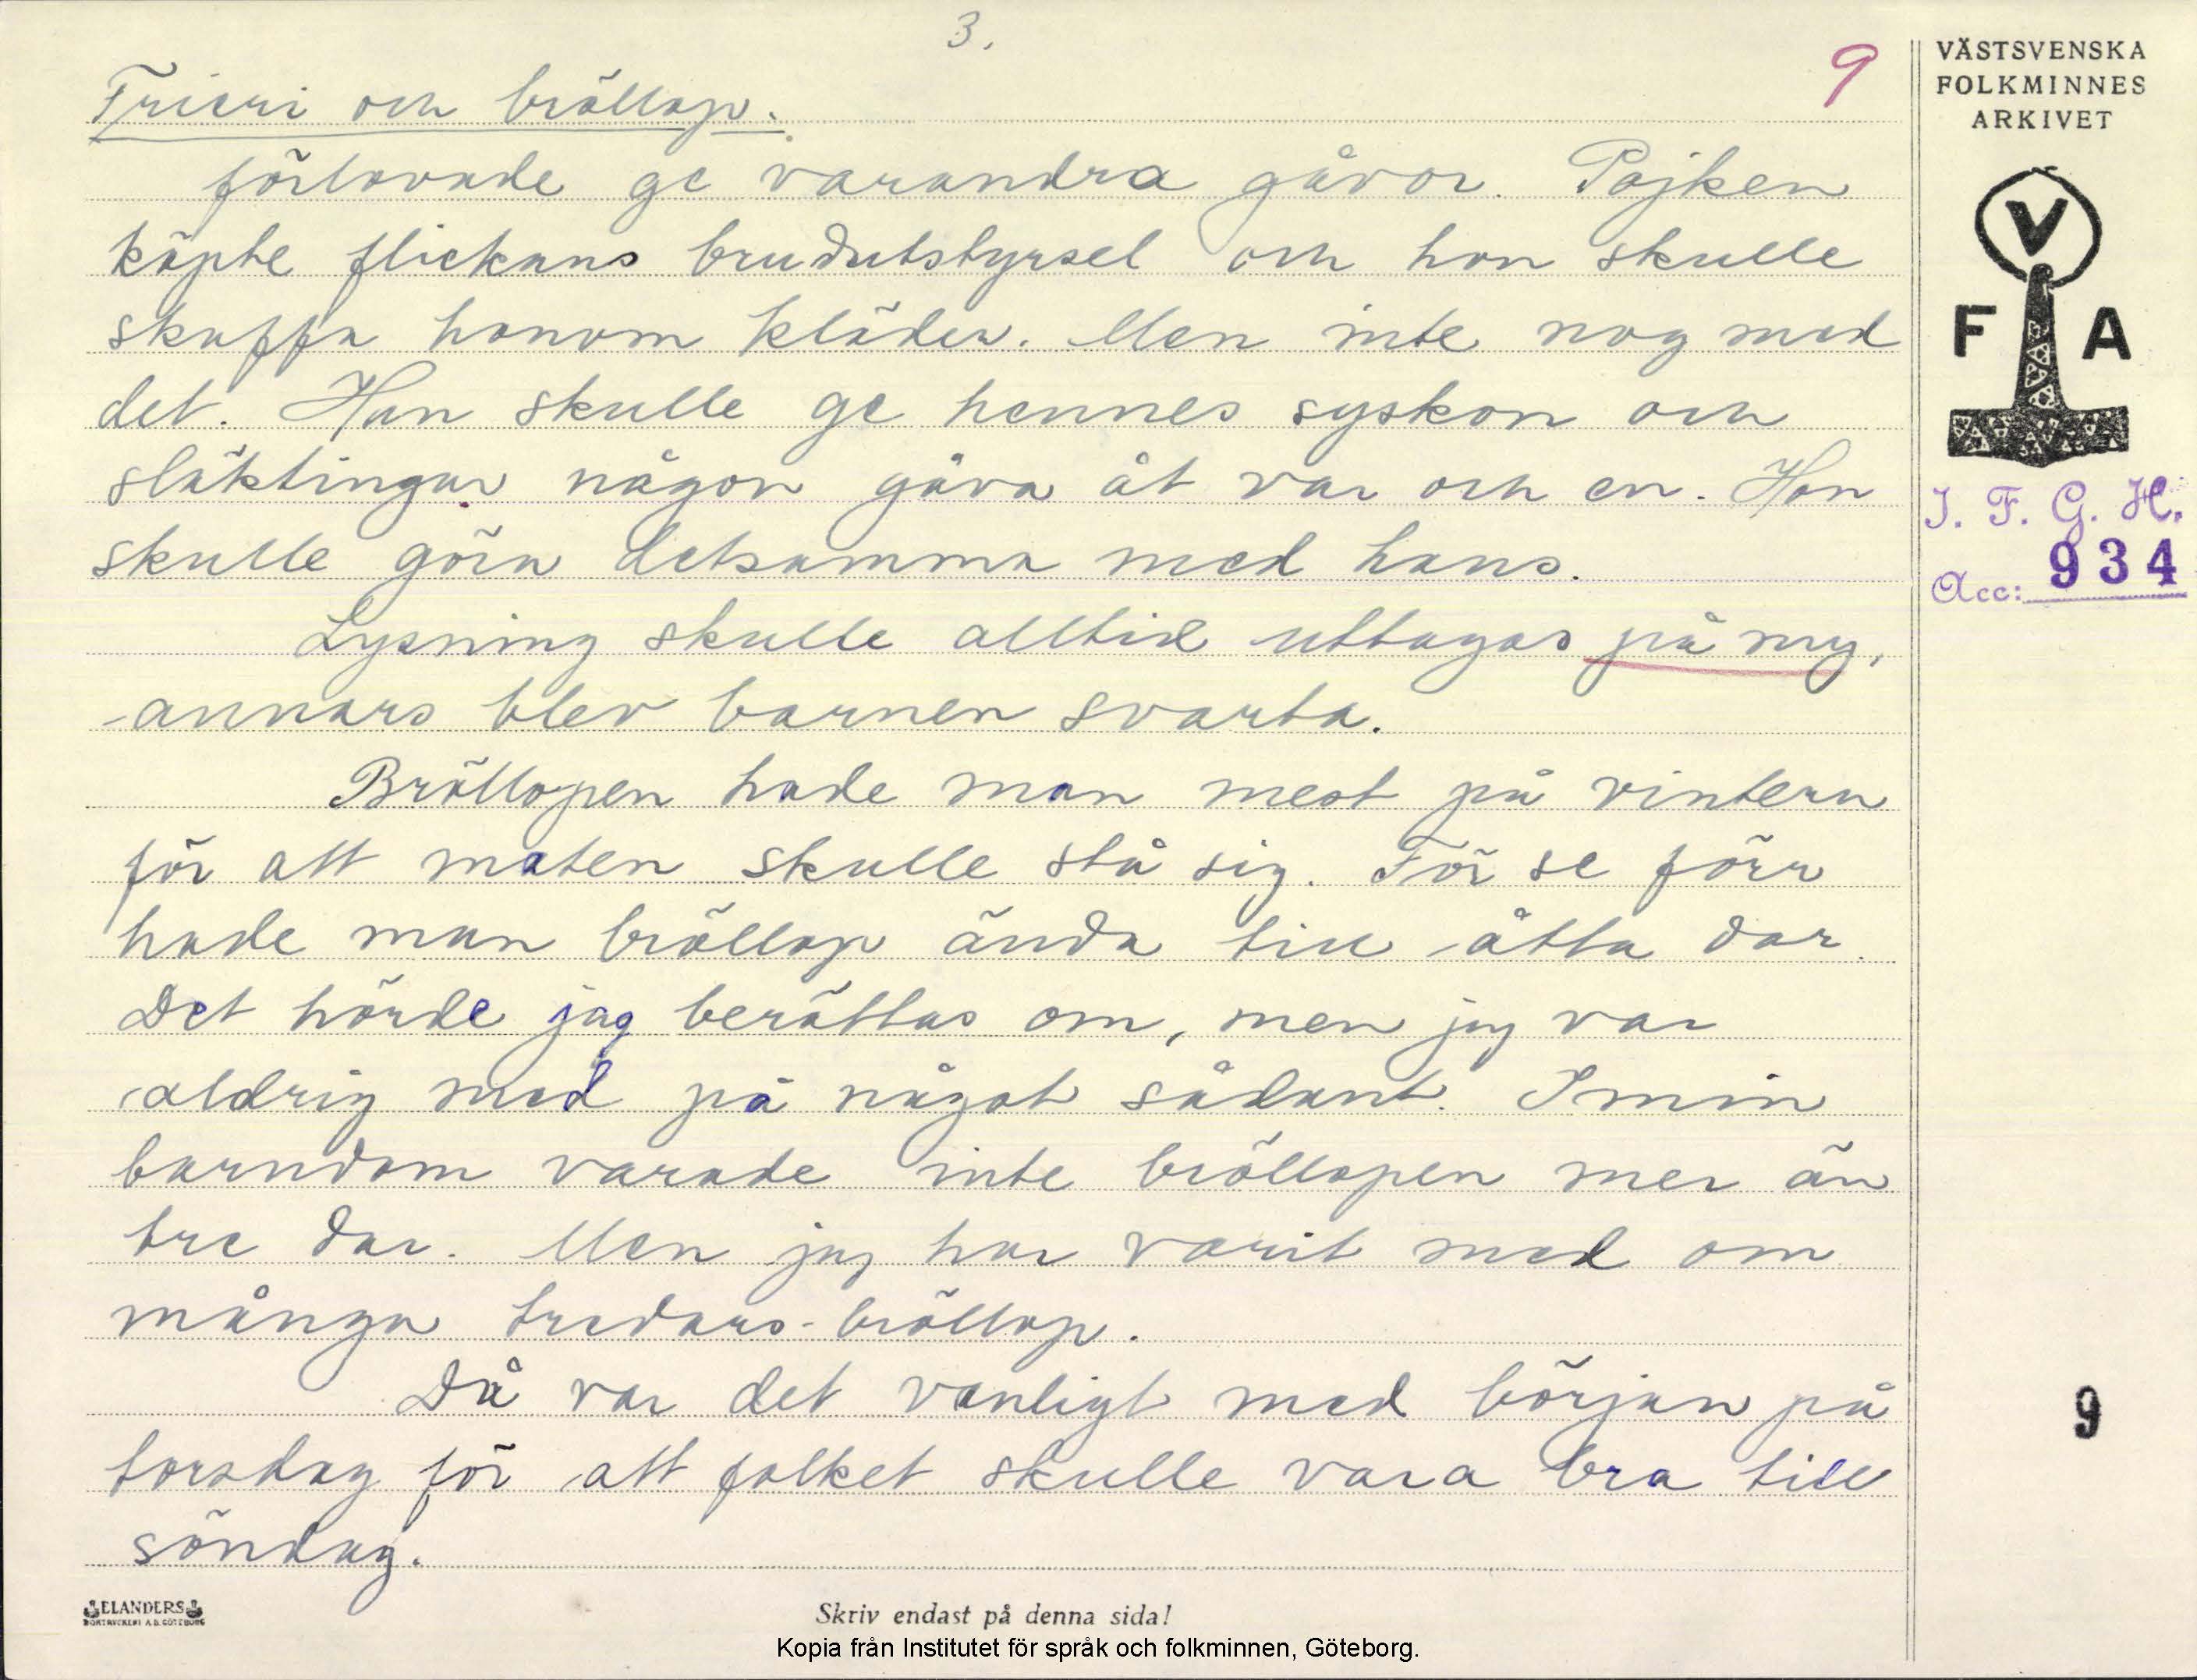 3.
9
Frieri och bröllop.
förlovade ge varandra gåvor. Pojken
köpte flickans brudutstyrsel och hon skulle
skaffa honom kläder. Men inte nog med
det. Han skulle ge hennes syskon och
släktingar någon gåva åt var och en. Hon
skulle göra detsamma med hans.
Lysning skulle alltid uttagas på ny,
annars blev barnen svarta.
Bröllopen hade man mest på vintern
för att maten skulle stå sig. För se förr
hade man bröllop ända till åtta dar.
Det hörde jag berättas om, men jag var
aldrig med på något sådant. I min
barndom varade inte bröllopen mer än
tre dar. Men jag har varit med om
många tredars-bröllop.
Då var det vanligt med början på
torsdag för att folket skulle vara bra till
söndag.
VÄSTSVENSKA
FOLKMINNES
ARKIVET
V
F A
I. F. G. H.
Acc: 934
9
ELANDERS
BOKTRYCKERI A.B. GÖTEBORG
Skriv endast på denna sida!
Kopia från Institutet för språk och folkminnen, Göteborg.